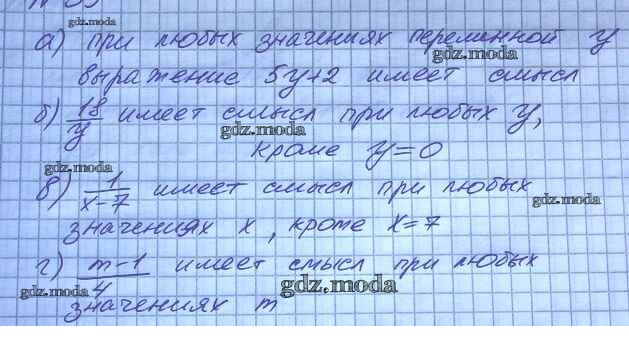 gdz.moda
а) при любых значениях переменной y
gdz.moda
выражение 5y+2 имеет смысл
б) 18/y имеет смысл при любых y,
gdz.moda
gdz.moda
кроме y=0
gdz.moda
в) 1/x-7 имеет смысл при любых
gdz.moda
значениях x, кроме x=7
г) m-1/4 имеет смысл при любых
gdz.moda
gdz.moda
значениях m